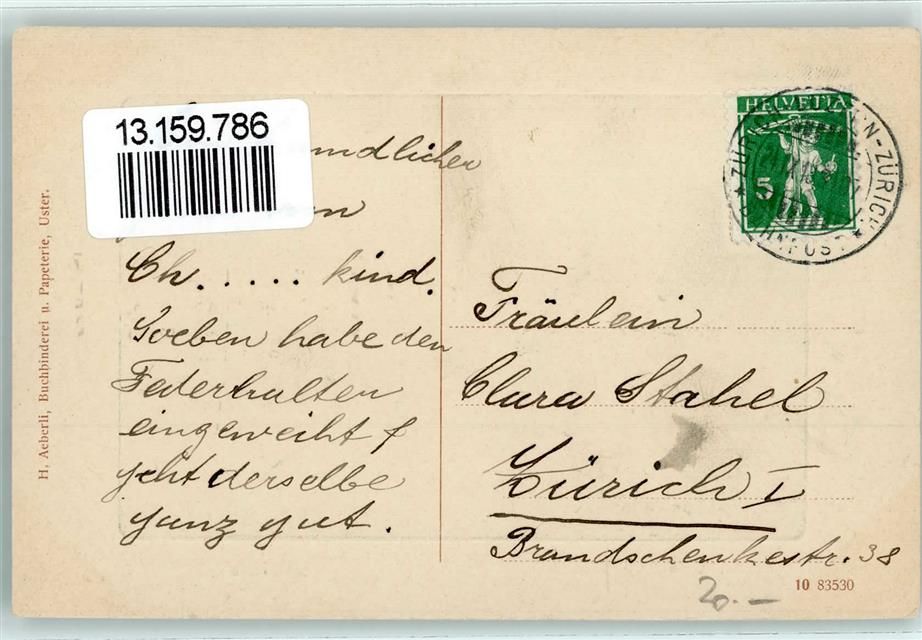 13.159.786
ndlicher
en
Ch..... kind.
Soeben habe den
Federhalten
eingeweiht &
geht derselbe
ganz gut.
HELVETIA
5
ZÜRICH
BAHNPOST
Fräulein
Clara Stahel
Zürich I
Brandschenkestr. 38
20.—
10 83530
H. Aeberli, Buchbinderei u. Papeterie, Uster.